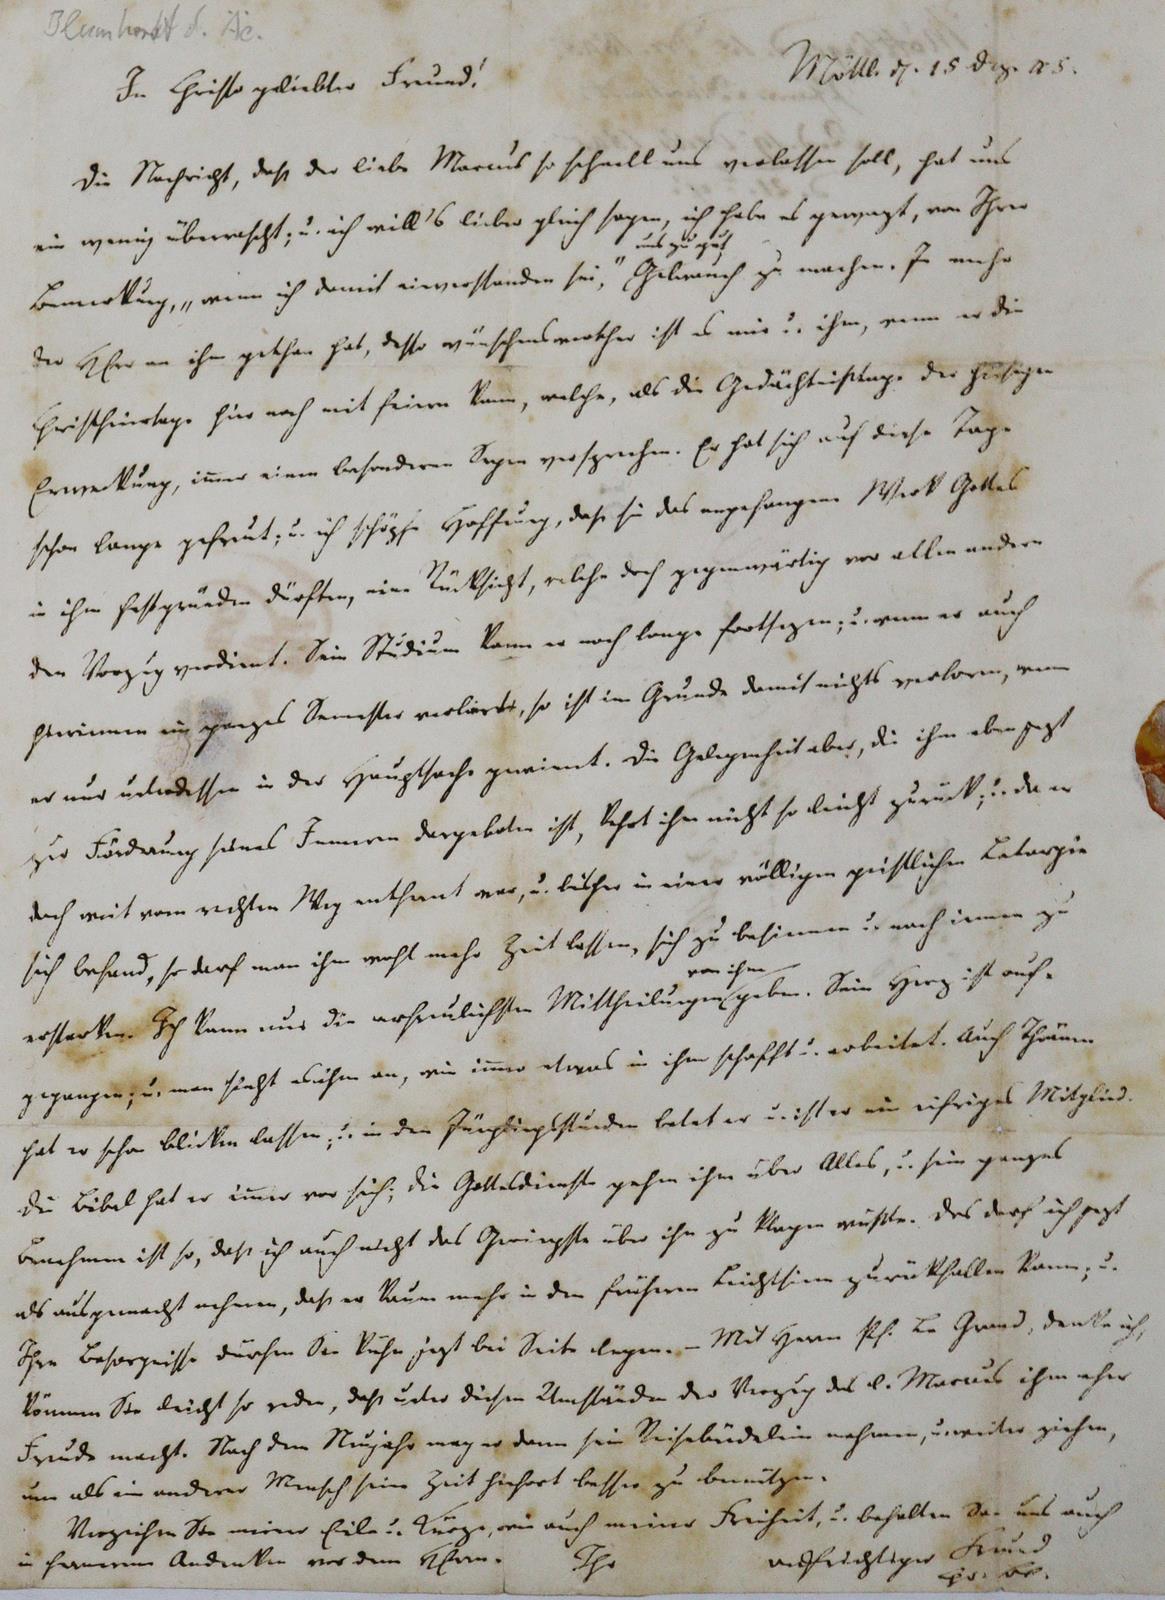 Blumhardt d. Ä.
Möttl. d. 15 Dez. 45.
In Christo geliebter Freund!
Die Nachricht, daß der liebe Marcus so schnell uns verlassen soll, hat uns
ein wenig überrascht; u. ich will's lieber gleich sagen, ich habe es gewagt, von Ihrer
Bemerkung, „wenn ich damit einverstanden sei," uns zu gut Gebrauch zu machen. Je mehr
der HErr an ihm gethan hat, desto wünschenswerther ist es mir u. ihm, wenn er die
Christfeiertage hier noch mit feiern kann, welche, als die Gedächtnißtage der hiesigen
Erweckung, immer einen besonderen Segen versprechen. Er hat sich auf diese Tage
schon lange gefreut; u. ich schöpfe Hoffnung, daß sie das angefangene Werk Gottes
in ihm festgründen dürften, eine Rücksicht, welche doch gegenwärtig vor allen andern
den Vorzug verdient. Sein Studium kann er noch lange fortsezen; u. wenn er auch
hierinnen ein ganzes Semester verlöre, so ist im Grunde damit nichts verloren, wenn
er nur unterdessen in der Hauptsache gewinnt. Die Gelegenheit aber, die ihm eben jezt
zur Förderung seines Inneren dargeboten ist, kehrt ihm nicht so leicht zurück; u. da er
doch weit vom rechten Weg entfernt war, u. bisher in einer völligen geistlichen Letargie
sich befand, so darf man ihm wohl mehr Zeit lassen, sich zu besinnen u. nach innen zu
erstarken. Ich kann nur die erfreulichsten Mittheilungen von ihm geben. Sein Herz ist auf-
gegangen; u. man sieht es ihm an, wie immer etwas in ihm schafft u. arbeitet. Auch Thränen
hat er schon blicken lassen; u. in den Jünglingsstunden betet er u. ist er ein eifriges Mitglied.
Die Bibel hat er immer vor sich; die Gottesdienste gehen ihm über Alles, u. sein ganzes
Benehmen ist so, daß ich auch nicht das Geringste über ihn zu klagen wüßte. Das darf ich jezt
als ausgemacht nehmen, daß er kaum mehr in den früheren Leichtsinn zurückfallen kann; u.
Ihre Besorgnisse dürfen Sie kühn jezt bei Seite legen. – Mit Herrn Pf. Le Grand, denke ich,
können Sie leicht so reden, daß unter diesen Umständen der Verzug des l. Marcus ihm eher
Freude macht. Nach dem Neujahr mag er dann sein Reisebündelein nehmen, u. weiter ziehen,
um als ein anderer Mensch seine Zeit hinfort besser zu benützen.
Verzeihen Sie meine Eile u. Kürze, wie auch meine Freiheit, u. behalten Sie uns auch
in fernerem Andenken vor dem HErrn. Ihr aufrichtiger Freund